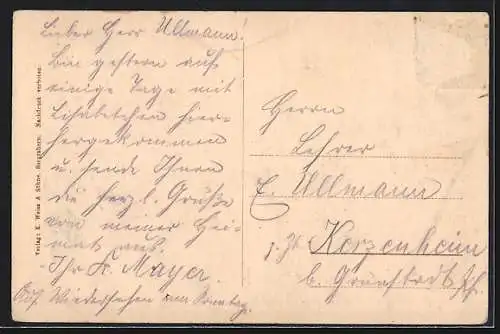 Lieber Herr Ullmann!
Bin gestern auf
einige Tage mit
Lisabethchen hier-
hergekommen
u. sende Ihnen
die herzl. Grüße
von meiner Hei-
mat aus.
Ihr K. Mayer.
Auf Wiedersehen am Sonntag.
Herrn
Lehrer
E. Ullmann
z. Zt. Kerzenheim
b. Grünstadt Pf.
Verlag: K. Weiss & Söhne, Bergzabern. Nachdruck verboten.